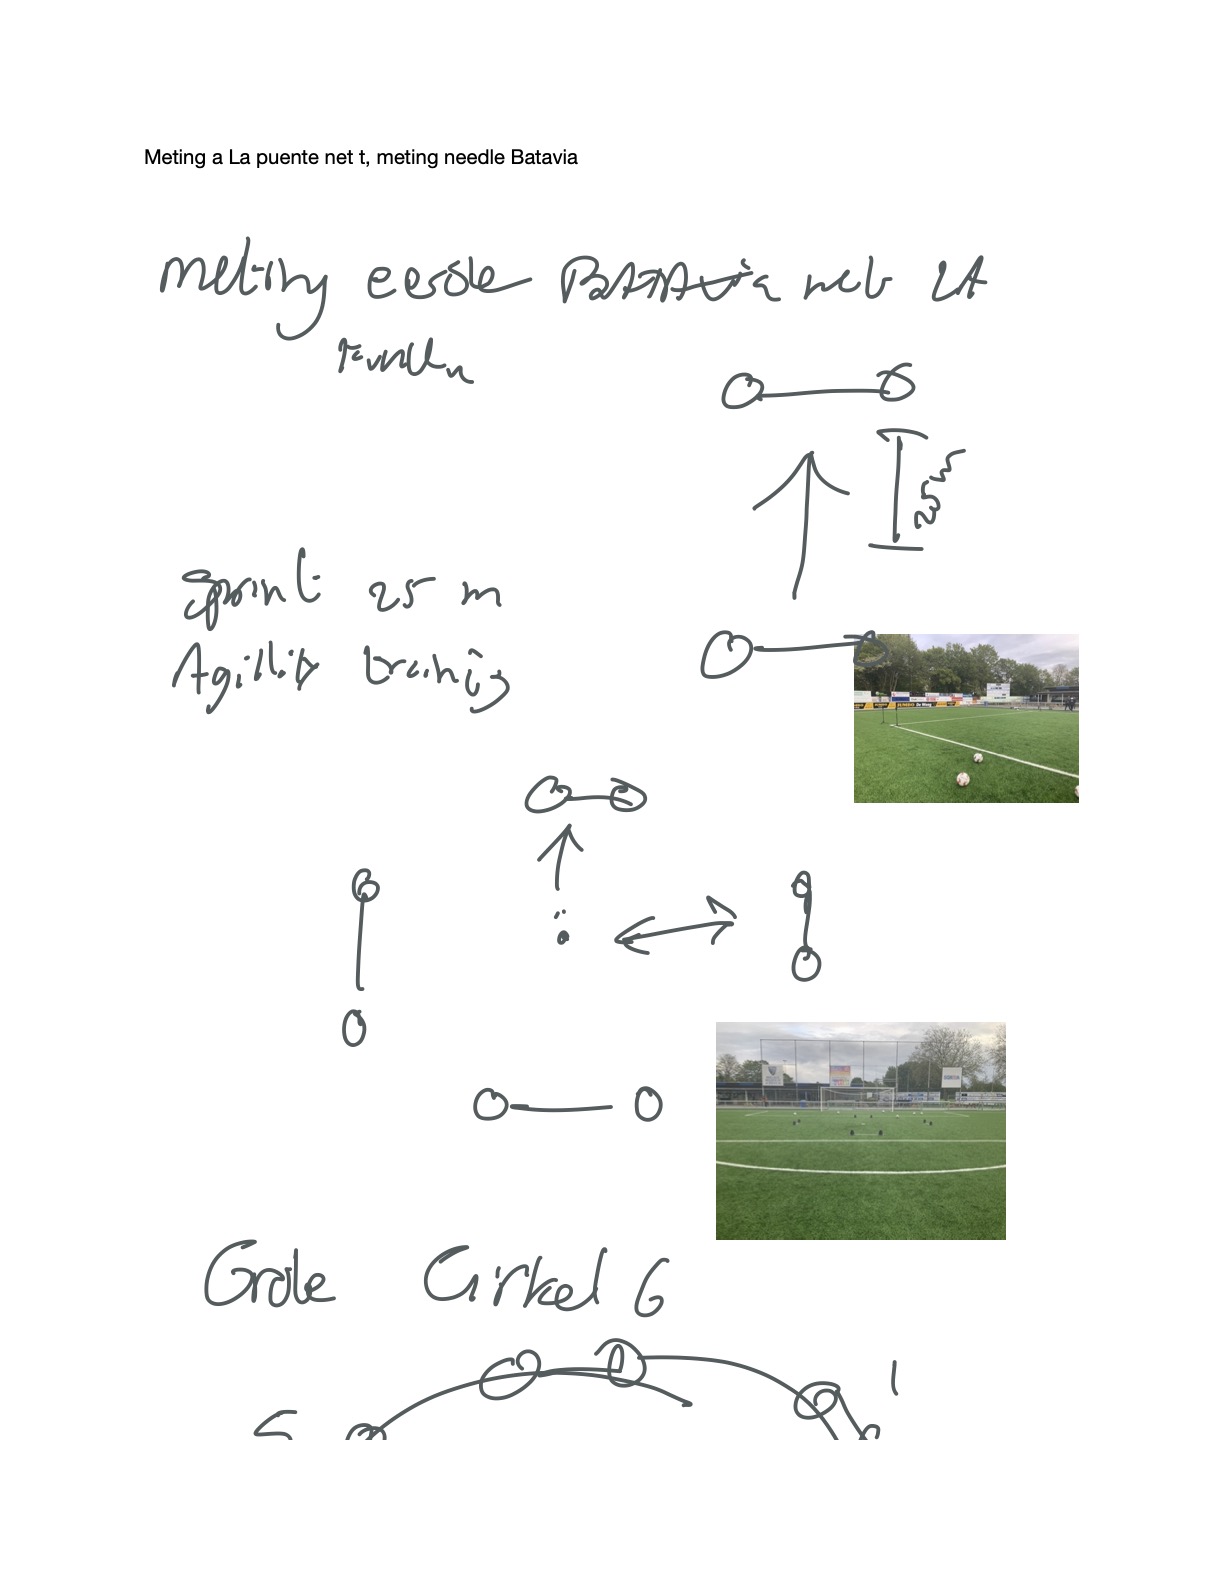 Meting a La puente net t, meting needle Batavia
meting eerste BATAVia met LA
25 m
sprint 25 m
Agillity trainig
JUMBO De Weeg
Grote Cirkel 6
1
5